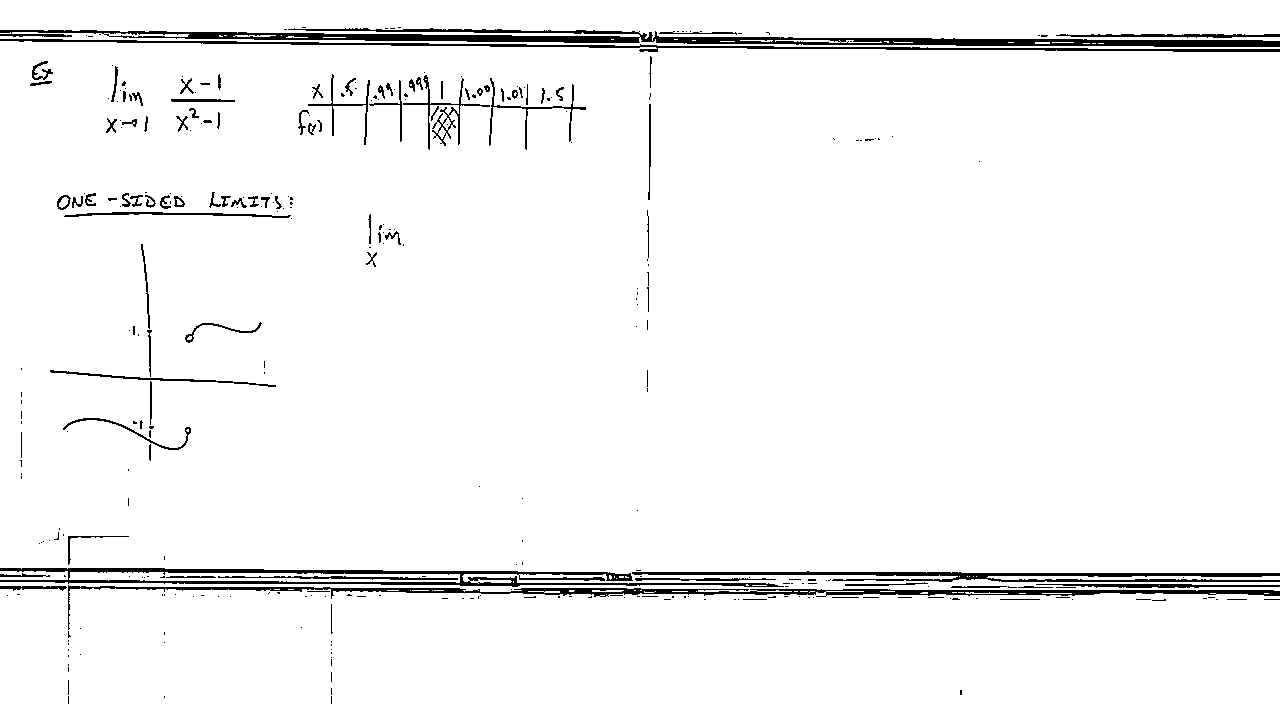 Ex
lim x→1 (x-1)/(x²-1)
x | .5 | .99 | .999 | 1 | 1.001 | 1.01 | 1.5
f(x)
ONE-SIDED LIMITS:
lim x
1
-1